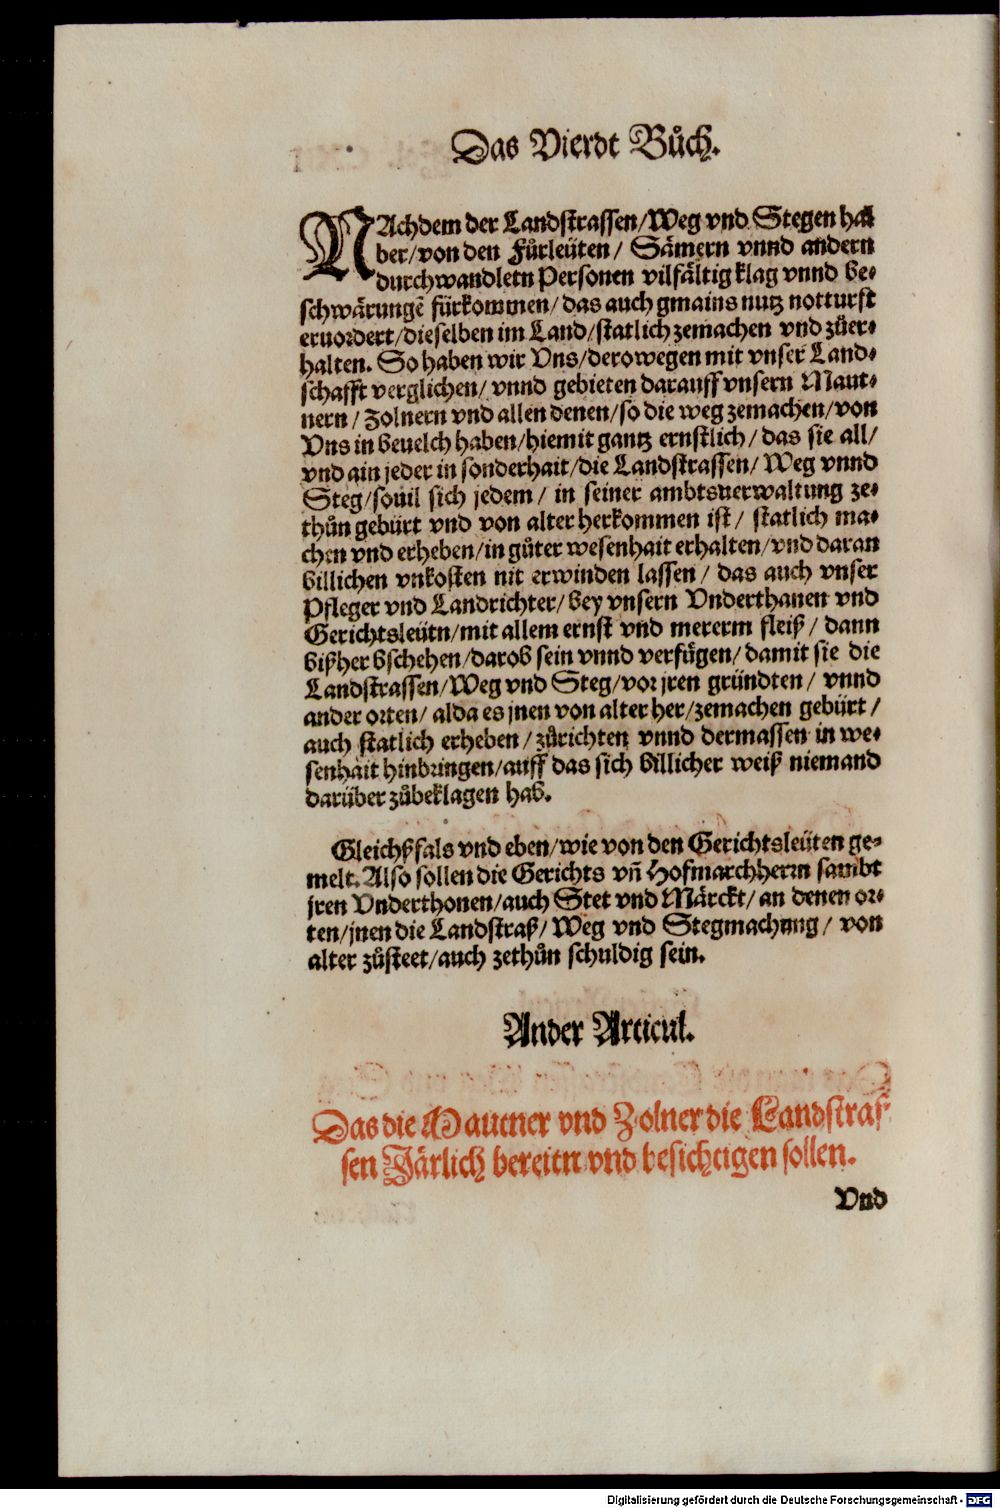 Das Vierdt Bůch.
NAchdem der Landstrassen/Weg vnd Stegen hal
ber/von den Fůrleüten/ Sämern vnnd andern
durchwandletn Personen vilfältig klag vnnd be-
schwärungē fürkommen/das auch gmains nutz notturft
eruordert/dieselben im Land/statlich zemachen vnd zůer-
halten. So haben wir Vns/derowegen mit vnser Land-
schafft verglichen/vnnd gebieten darauff vnsern Maut-
nern/Zolnern vnd allen denen/so die weg zemachen/von
Vns in beuelch haben/hiemit gantz ernstlich/das sie all/
vnd ain jeder in sonderhait/die Landstrassen/Weg vnnd
Steg/souil sich jedem/in seiner ambtsuerwaltung ze-
thůn gebürt vnd von alter herkommen ist/statlich ma-
chen vnd erheben/in gůter wesenhait erhalten/vnd daran
billichen vnkosten nit erwinden lassen/das auch vnser
Pfleger vnd Landrichter/bey vnsern Vnderthanen vnd
Gerichtsleütn/mit allem ernst vnd mererm fleiß/dann
bißher bschehen/darob sein vnnd verfügen/damit sie die
Landstrassen/Weg vnd Steg/vor jren gründten/vnnd
ander orten/alda es jnen von alter her/zemachen gebürt/
auch statlich erheben/zůrichten vnnd dermassen in we-
senhait hinbringen/auff das sich billicher weiß niemand
darüber zůbeklagen hab.
Gleichßfals vnd eben/wie von den Gerichtsleüten ge-
melt. Also sollen die Gerichts vñ Hofmarchherrn sambt
jren Vnderthonen/auch Stet vnd Märckt/an denen or-
ten/jnen die Landstraß/Weg vnd Stegmachung/von
alter zůsteet/auch zethůn schuldig sein.
Ander Articul.
Das die Mautner vnd Zolner die Landstras-
sen Järlich bereitn vnd besichtigen sollen.
Vnd
Digitalisierung gefördert durch die Deutsche Forschungsgemeinschaft - DFG